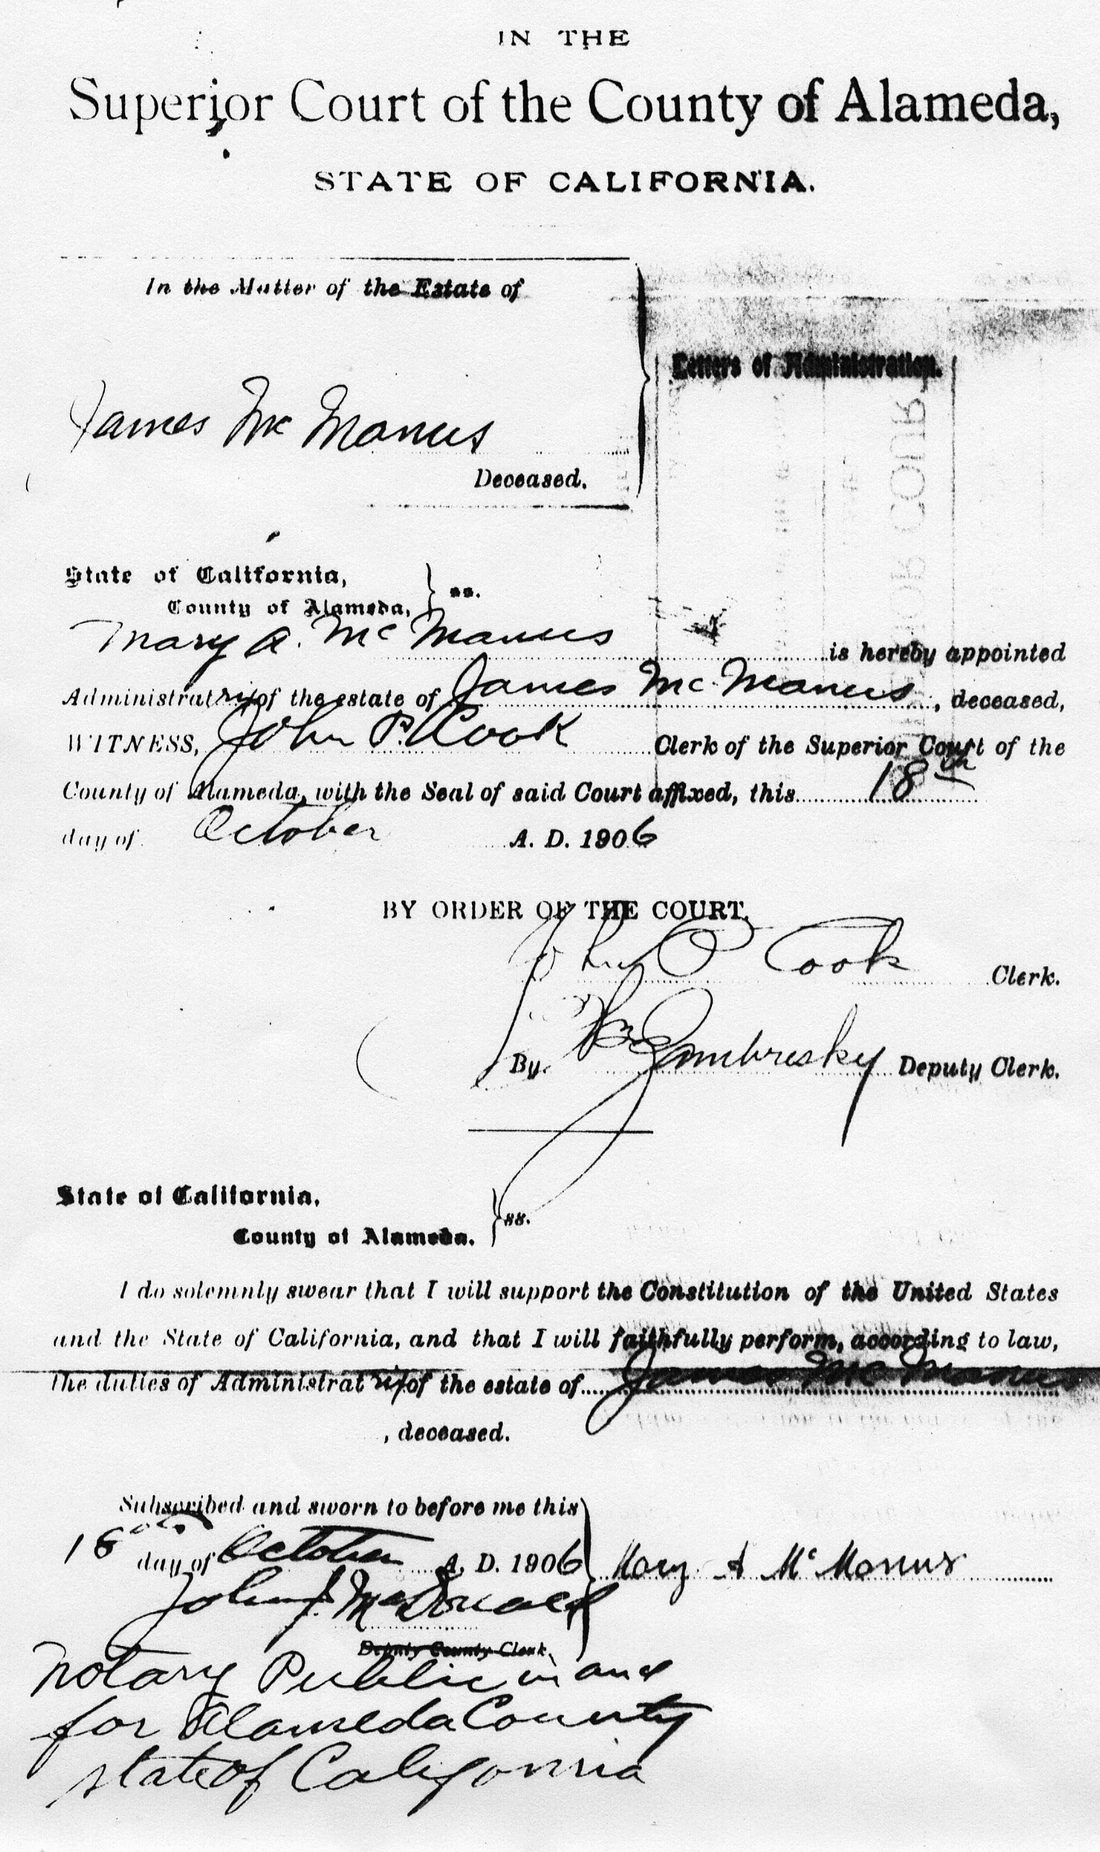 IN THE
Superior Court of the County of Alameda,
STATE OF CALIFORNIA.
In the Matter of the Estate of
James McManus
Deceased.
Letters of Administration.
State of California,
County of Alameda, } ss.
Mary A. McManus is hereby appointed
Administratrix of the estate of James McManus, deceased,
WITNESS, John P. Cook Clerk of the Superior Court of the
County of Alameda, with the Seal of said Court affixed, this 18th
day of October A. D. 1906
BY ORDER OF THE COURT.
John P Cook Clerk.
By Zambresky Deputy Clerk.
State of California,
County of Alameda. } ss.
I do solemnly swear that I will support the Constitution of the United States
and the State of California, and that I will faithfully perform, according to law,
the duties of Administratrix of the estate of James McManus
, deceased.
Subscribed and sworn to before me this
18th day of October A. D. 1906 Mary A McManus
John J. McDonald
Deputy County Clerk.
Notary Public in and
for Alameda County
State of California